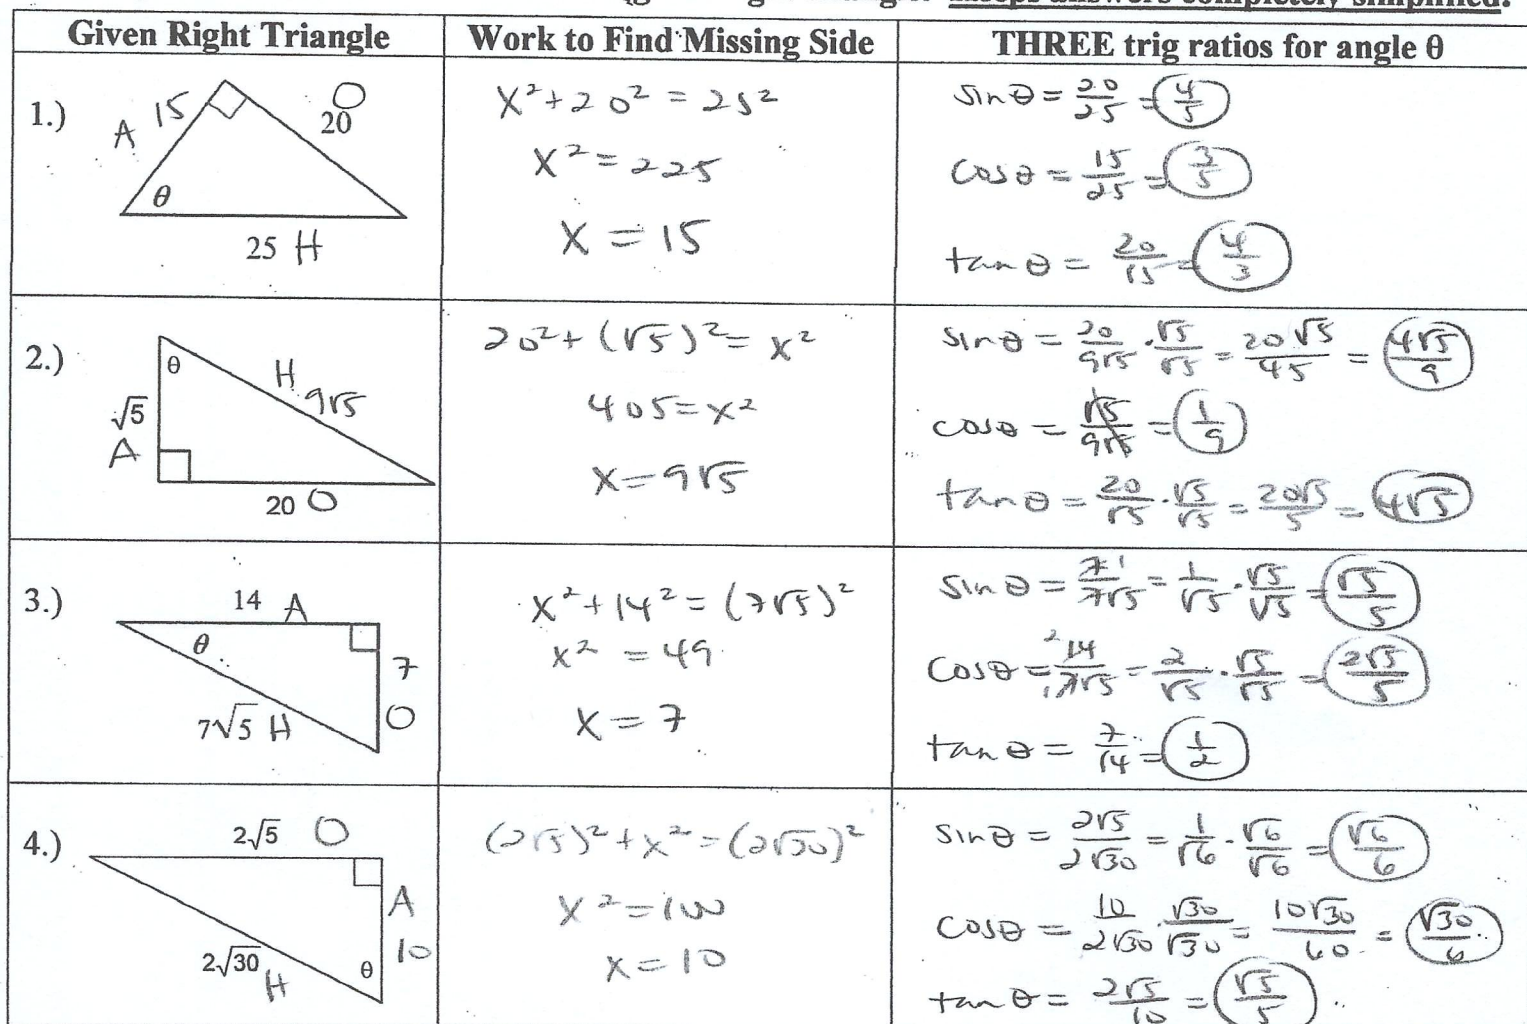 Given Right Triangle
Work to Find Missing Side
THREE trig ratios for angle θ
1.)
A 15
O
20
θ
25 H
x² + 20² = 25²
x² = 225
x = 15
sinθ = 20/25 = 4/5
cosθ = 15/25 = 3/5
tanθ = 20/15 = 4/3
2.)
θ
H
9√5
√5
A
20 O
20² + (√5)² = x²
405 = x²
x = 9√5
sinθ = 20/9√5 · √5/√5 = 20√5/45 = 4√5/9
cosθ = √5/9√5 = 1/9
tanθ = 20/√5 · √5/√5 = 20√5/5 = 4√5
3.)
14 A
θ
7
O
7√5 H
x² + 14² = (7√5)²
x² = 49
x = 7
sinθ = 7/7√5 = 1/√5 · √5/√5 = √5/5
cosθ = 14/7√5 = 2/√5 · √5/√5 = 2√5/5
tanθ = 7/14 = 1/2
4.)
2√5 O
A
10
2√30
H
θ
(2√5)² + x² = (2√30)²
x² = 100
x = 10
sinθ = 2√5/2√30 = 1/√6 · √6/√6 = √6/6
cosθ = 10/2√30 · √30/√30 = 10√30/60 = √30/6
tanθ = 2√5/10 = √5/5